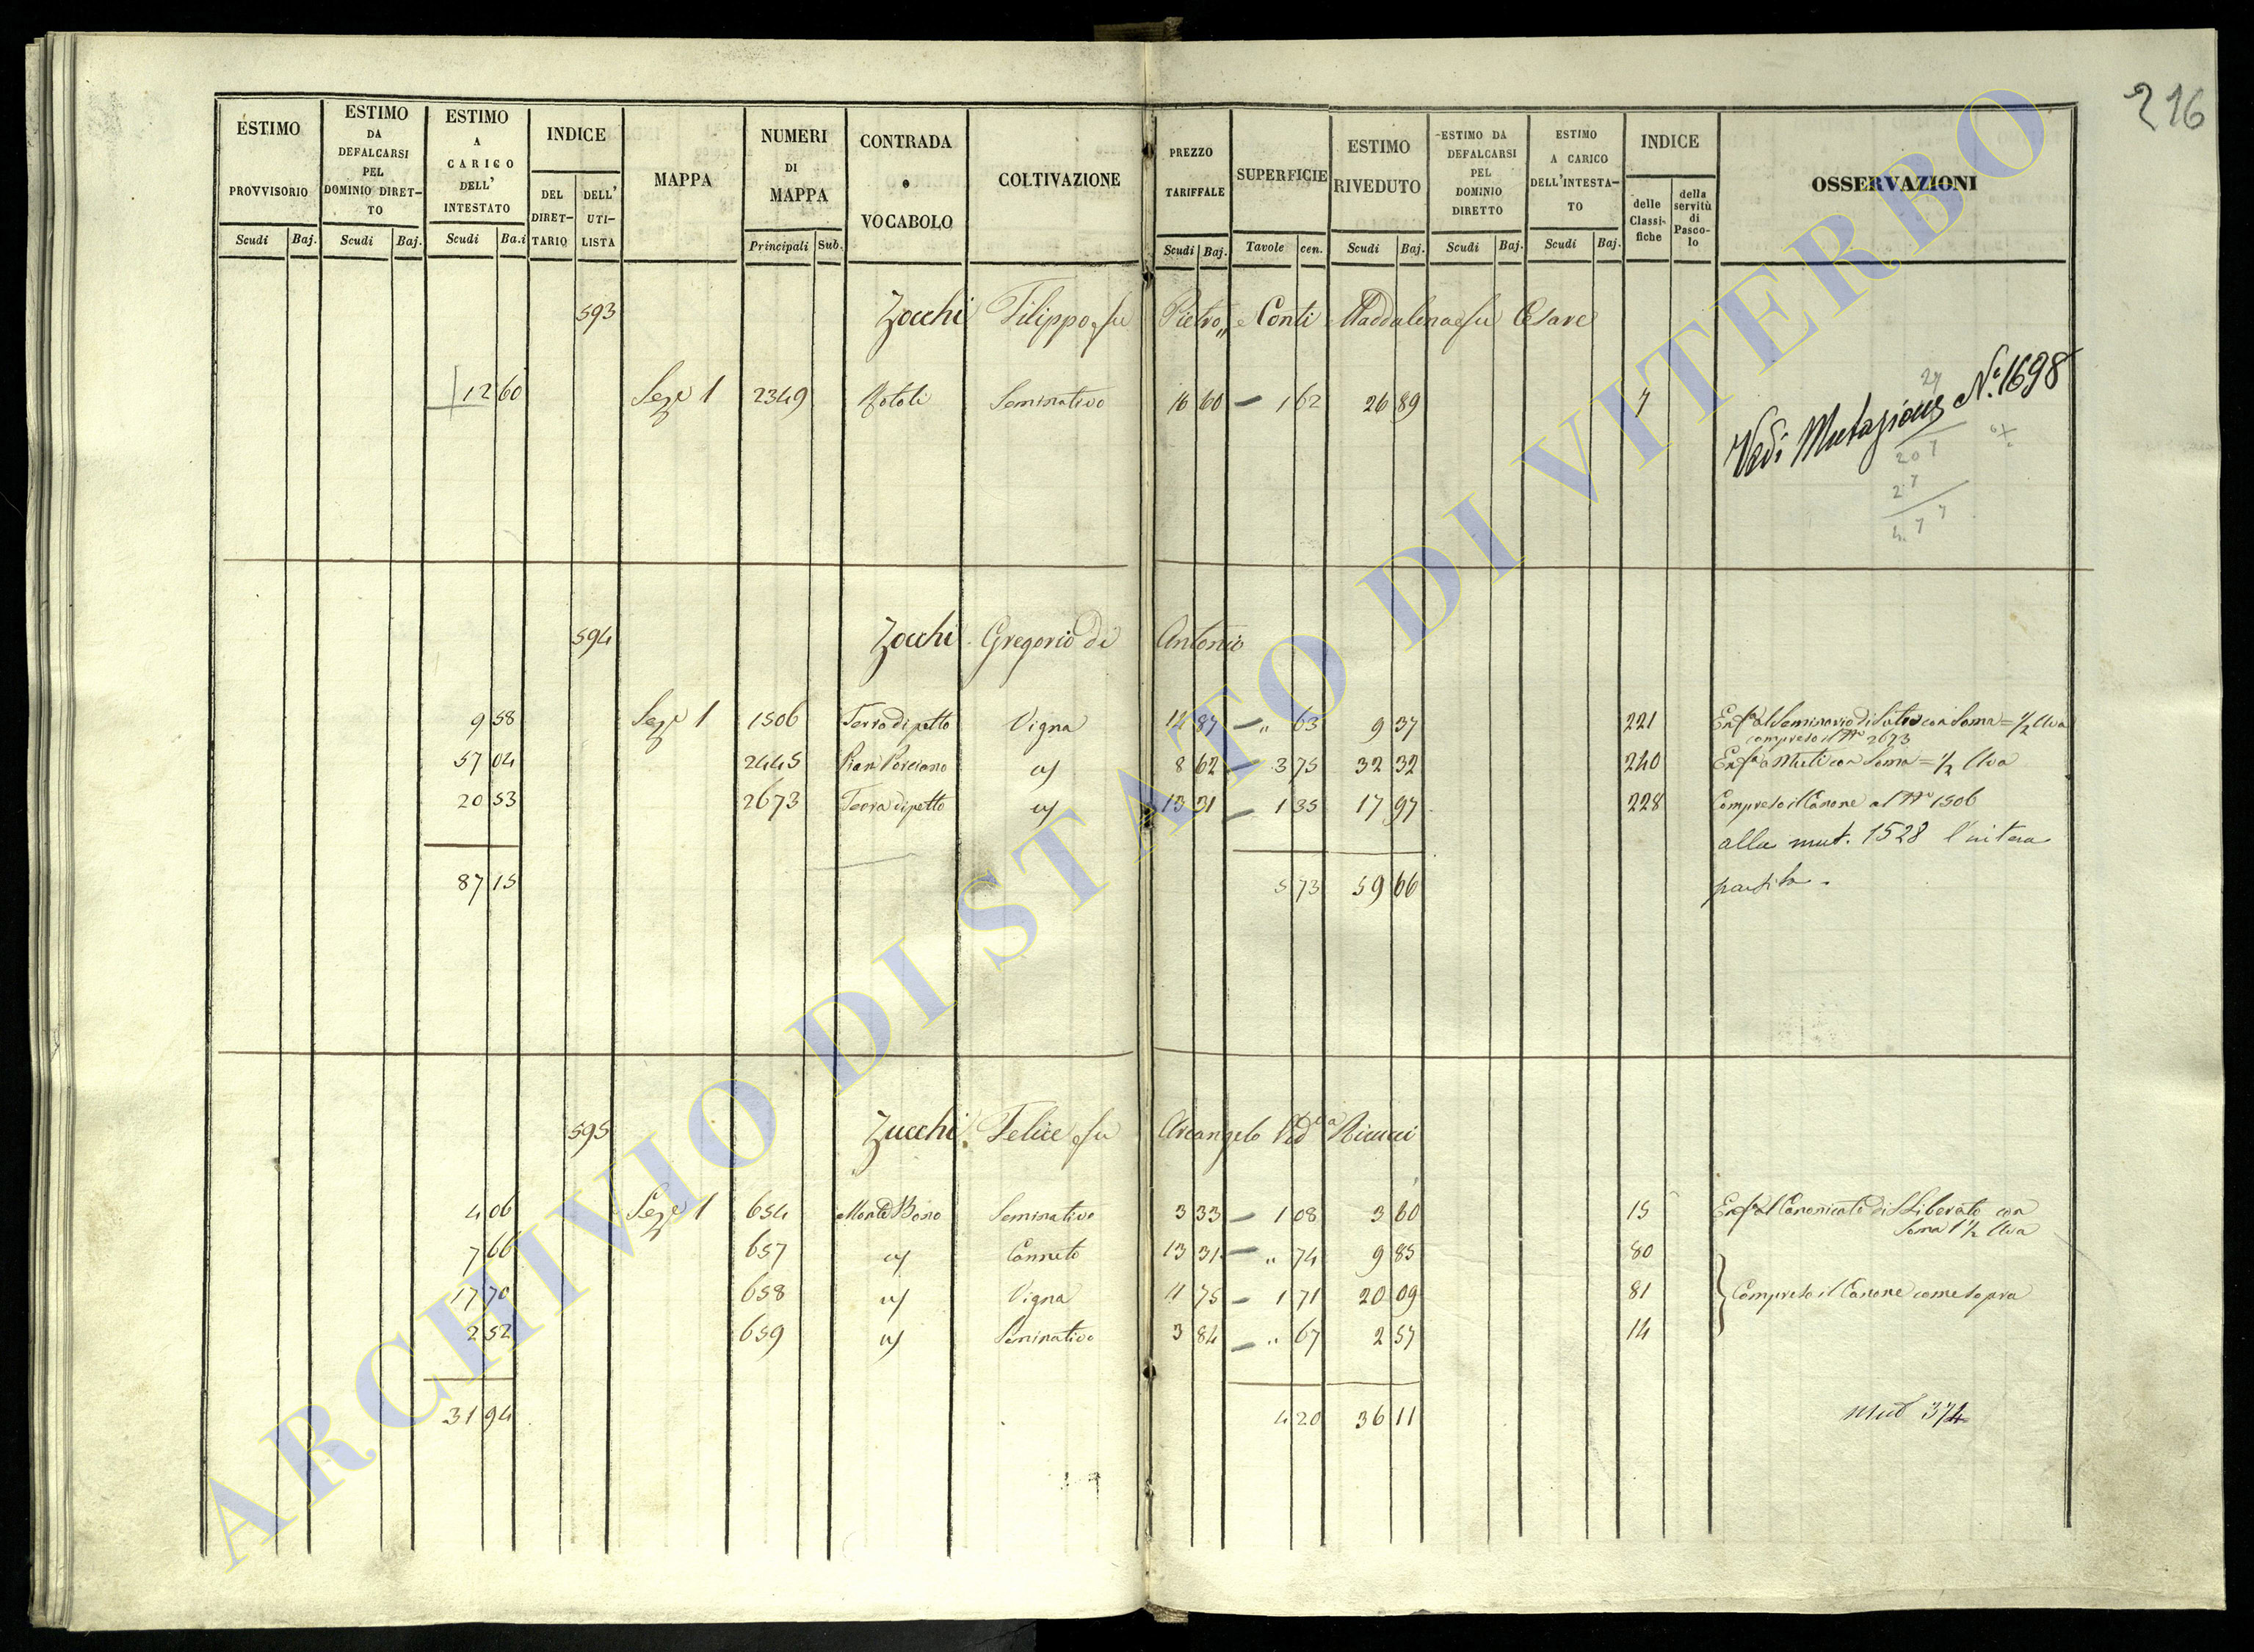 216
ESTIMO PROVVISORIO Scudi Baj.
ESTIMO DA DEFALCARSI PEL DOMINIO DIRETTO Scudi Baj.
ESTIMO A CARICO DELL' INTESTATO Scudi Ba.i
INDICE DEL DIRETTARIO DELL' UTILISTA
MAPPA
NUMERI DI MAPPA Principali Sub.
CONTRADA o VOCABOLO
COLTIVAZIONE
PREZZO TARIFFALE Scudi Baj.
SUPERFICIE Tavole cen.
ESTIMO RIVEDUTO Scudi Baj.
ESTIMO DA DEFALCARSI PEL DOMINIO DIRETTO Scudi Baj.
ESTIMO A CARICO DELL'INTESTATO Scudi Baj.
INDICE delle Classifiche della servitù di Pascolo
OSSERVAZIONI
593 Zocchi Filippo fu Pietro,, e Conti Maddalena fu Cesare
12 60 Seze 1 2349 Seminativo 16 60 – 1 62 26 89 7
Vedi Mutazione N.º 1698
27
7
20 7
2 7
4 7 7
594 Zocchi Gregorio di Antonio
9 58 Seze 1 1506 Terra di petto Vigna 14 87 – " 63 9 37 221 Enfa al Seminario di Sutri con Soma = 1/2 Uva
compreso il No 2673
57 04 2445 Pian Porciano a/ 8 62 – 3 75 32 32 240 Enfa a Muti con Soma = 1/2 Uva
20 53 2673 Terra di petto a/ 13 31 – 1 35 17 97 228 Compreso il Canone al No 1506
alla mut. 1528 l'intera
87 15 5 73 59 66 partita.
595 Zucchi Felice fu Arcangelo Vedova Ricucci
4 06 Seze 1 654 Monte Bono Seminativo 3 33 – 1 08 3 60 15 Enfa al Canonicato di S Liberato con
Soma 1 1/2 Uva
7 66 657 a/ Canneto 13 31 – " 74 9 85 80
17 70 658 a/ Vigna 11 75 – 1 71 20 09 81 Compreso il Canone come sopra
2 52 659 a/ Seminativo 3 84 – " 67 2 57 14
31 94 4 20 36 11 Mut 374
ARCHIVIO DI STATO DI VITERBO